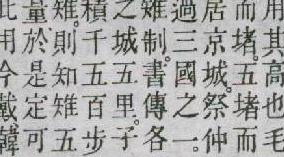 用其高也毛
而堵。五堵而
居京城。祭仲
過三國之一。
雉制。書傳各
之城五里。子
積千五百步
雉。則知雉五
量於是定可
此用今戴韓